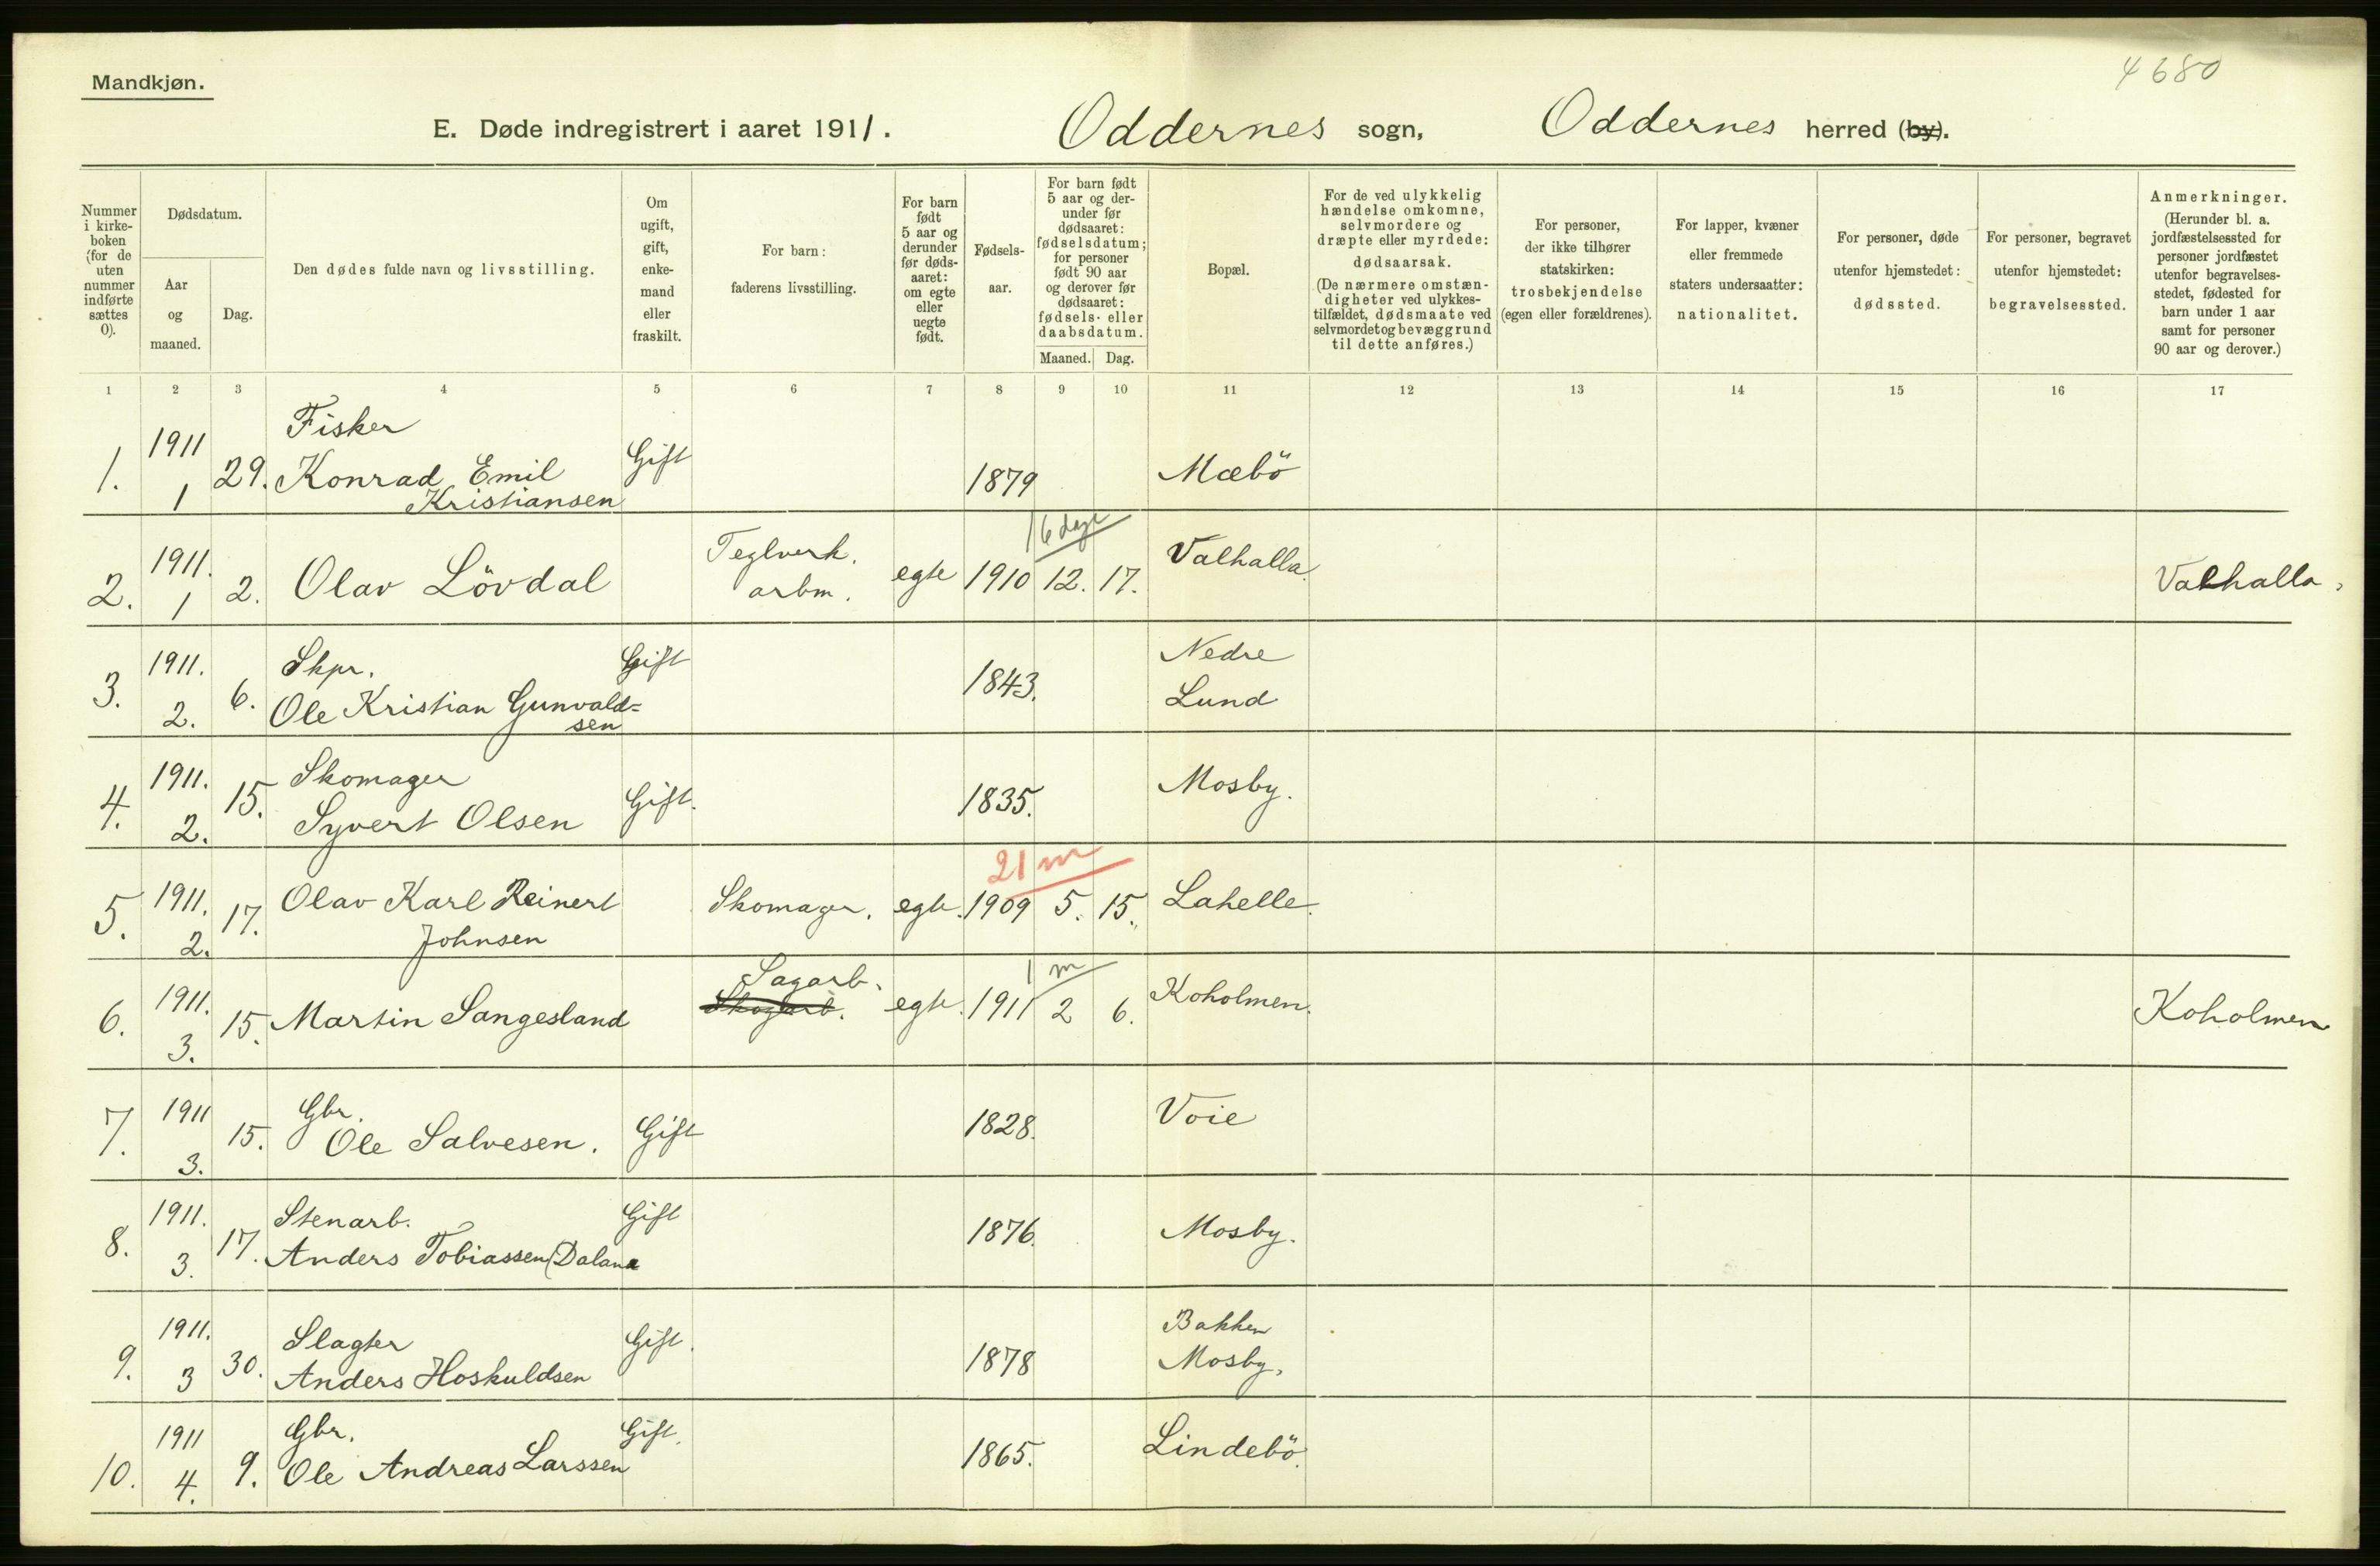 4680
Mandkjøn.
E. Døde indregistrert i aaret 1911.
Oddernes sogn, Oddernes herred (by).
Nummer i kirke-boken (for de uten nummer indførte sættes 0).
Dødsdatum.
Aar og maaned.
Dag.
Den dødes fulde navn og livsstilling.
Om ugift, gift, enke-mand eller fraskilt.
For barn: faderens livsstilling.
For barn født 5 aar og derunder før døds-aaret: om egte eller uegte født.
Fødsels-aar.
For barn født 5 aar og der-under før dødsaaret: fødselsdatum; for personer født 90 aar og derover før dødsaaret: fødsels- eller daabsdatum.
Maaned. Dag.
Bopæl.
For de ved ulykkelig hændelse omkomne, selvmordere og dræpte eller myrdede: dødsaarsak.
(De nærmere omstæn-digheter ved ulykkes-tilfældet, dødsmaate ved selvmordet og bevæggrund til dette anføres.)
For personer, der ikke tilhører statskirken: trosbekjendelse (egen eller forældrenes).
For lapper, kvæner eller fremmede staters undersaatter: nationalitet.
For personer, døde utenfor hjemstedet: dødssted.
For personer, begravet utenfor hjemstedet: begravelsessted.
Anmerkninger.
(Herunder bl. a. jordfæstelsessted for personer jordfæstet utenfor begravelses-stedet, fødested for barn under 1 aar samt for personer 90 aar og derover.)
1 2 3 4 5 6 7 8 9 10 11 12 13 14 15 16 17
1. 1911 1 29. Fisker
Konrad Emil
Kristiansen Gift 1879 Mæbö
16 dage
2. 1911. 1 2. Olav Lövdal Teglverk. arbm. egte 1910 12. 17. Valhalla. Valhalla.
3. 1911. 2. 6. Skpr.
Ole Kristian Gunvald=
sen Gift 1843. Nedre
Lund
4. 1911. 2. 15. Skomager
Syvert Olsen Gift. 1835. Mosby.
21 m
5. 1911. 2. 17. Olav Karl Reinert
Johnsen Skomager. egte. 1909 5. 15. Lahelle.
1 m
6. 1911. 3. 15. Martin Sangesland Sagarb. egte. 1911 2 6. Koholmen. Koholmen
7. 1911 3. 15. Gbr.
Ole Salvesen. Gift 1828. Voie
8. 1911. 3. 17. Stenarb.
Anders Tobiassen (Dalane Gift 1876. Mosby.
9. 1911. 3 30. Slagter
Anders Hoskuldsen Gift. 1878 Bakken
Mosby.
10. 1911 4. 9. Gbr.
Ole Andreas Larssen Gift. 1865. Lindebö.